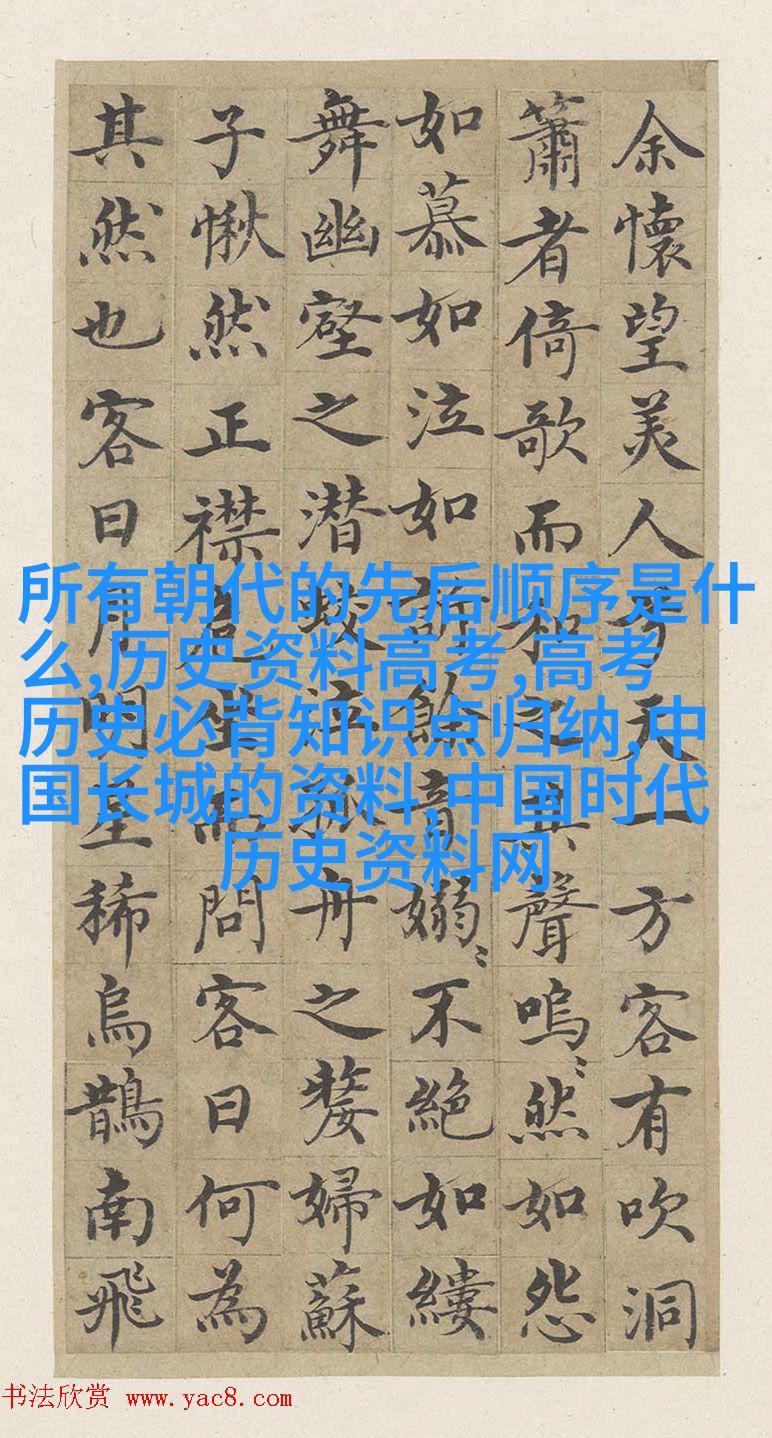 余懷望美人兮天一方客有吹洞
簫者倚歌而和之其聲嗚〻然如怨
如慕如泣如訴餘音嫋〻不絶如縷
舞幽壑之潜蛟泣孤舟之嫠婦蘇
子愀然正襟危坐而問客曰何為
其然也客曰月明星稀烏鵲南飛
所有朝代的先后顺序是什
么,历史资料高考,高考
历史必背知识点归纳,中
国长城的资料,中国时代
历史资料网
书法欣赏 www.yac8.com